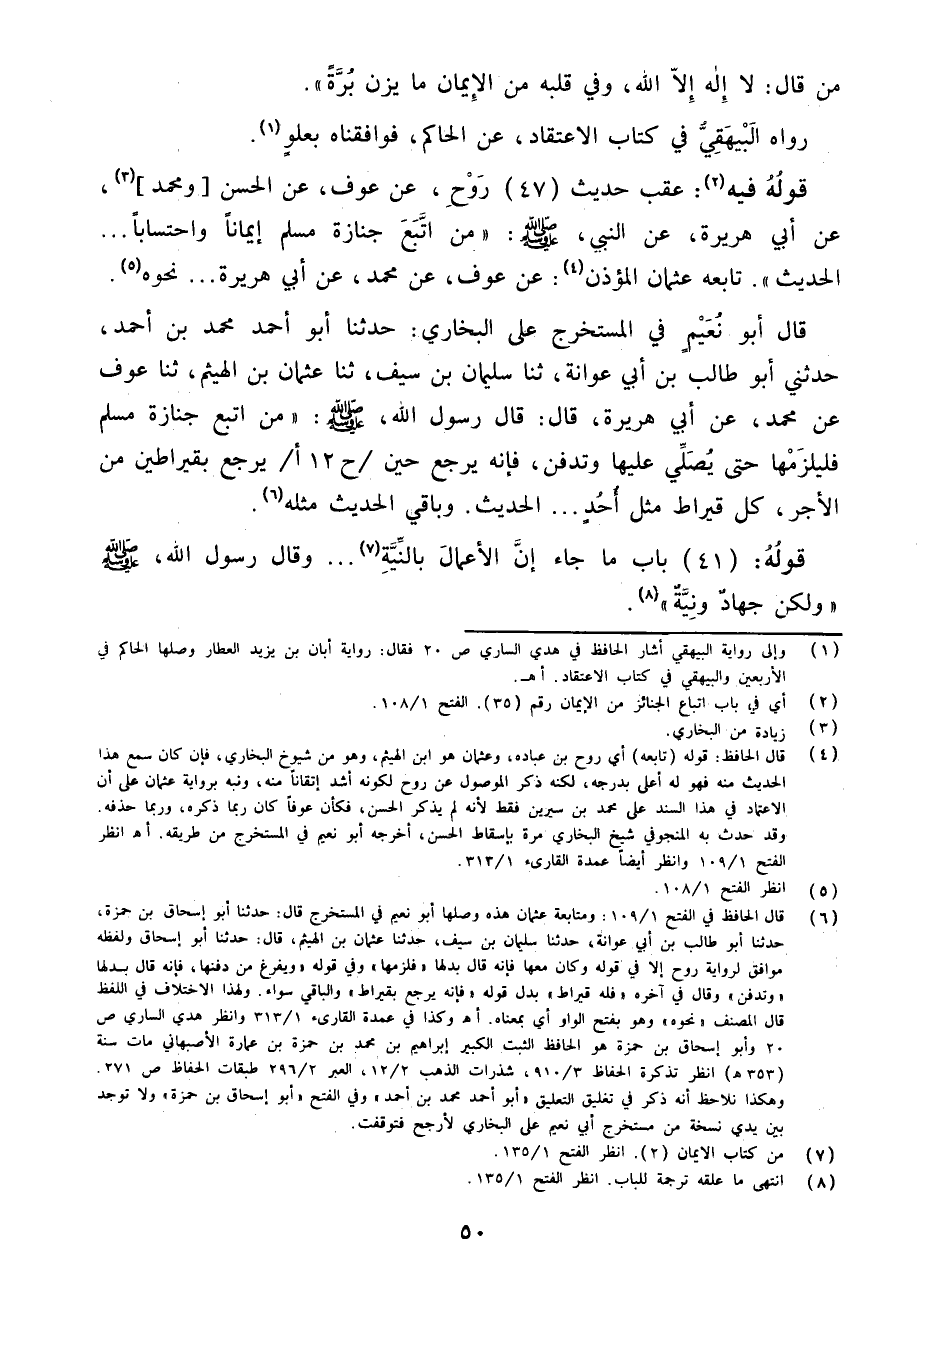 من قال: لا إله إلاّ الله، وفي قلبه من الإيمان ما يزن بُرَّةً».
رواه البَيْهَقِيُّ في كتاب الاعتقاد، عن الحاكم، فوافقناه بعلوٍ(١).
قولُهُ فيه(٢): عقب حديث (٤٧) رَوْحٍ، عن عوف، عن الحسن [ومحمد](٣)،
عن أبي هريرة، عن النبي، ﷺ: «من اتَّبَعَ جنازة مسلم إيماناً واحتساباً...
الحديث». تابعه عثمان المؤذن(٤): عن عوف، عن محمد، عن أبي هريرة... نحوه(٥).
قال أبو نُعَيْمٍ في المستخرج على البخاري: حدثنا أبو أحمد محمد بن أحمد،
حدثني أبو طالب بن أبي عوانة، ثنا سليمان بن سيف، ثنا عثمان بن الهيثم، ثنا عوف
عن محمد، عن أبي هريرة، قال: قال رسول الله، ﷺ: «من اتبع جنازة مسلم
فليلزَمْها حتى يُصَلِّي عليها وتدفن، فإنه يرجع حين /ح ١٢ أ/ يرجع بقيراطين من
الأجر، كل قيراط مثل أُحُدٍ... الحديث. وباقي الحديث مثله(٦).
قولُهُ: (٤١) باب ما جاء إنَّ الأعمالَ بالنِّيَّةِ(٧)... وقال رسول الله، ﷺ
«ولكن جهادٌ ونِيَّةٌ»(٨).
(١) وإلى رواية البيهقي أشار الحافظ في هدي الساري ص ٢٠ فقال: رواية أبان بن يزيد العطار وصلها الحاكم في
الأربعين والبيهقي في كتاب الاعتقاد. أ هـ.
(٢) أي في باب اتباع الجنائز من الإيمان رقم (٣٥). الفتح ١٠٨/١.
(٣) زيادة من البخاري.
(٤) قال الحافظ: قوله (تابعه) أي روح بن عباده، وعثمان هو ابن الهيثم، وهو من شيوخ البخاري، فإن كان سمع هذا
الحديث منه فهو له أعلى بدرجه، لكنه ذكر الموصول عن روح لكونه أشد إتقاناً منه، ونبه برواية عثمان على أن
الاعتماد في هذا السند على محمد بن سيرين فقط لأنه لم يذكر الحسن، فكأن عوفاً كان ربما ذكره، وربما حذفه.
وقد حدث به المنجوفي شيخ البخاري مرة بإسقاط الحسن، أخرجه أبو نعيم في المستخرج من طريقه. أ ه انظر
الفتح ١٠٩/١ وانظر أيضاً عمدة القارىء ٣١٣/١.
(٥) انظر الفتح ١٠٨/١.
(٦) قال الحافظ في الفتح ١٠٩/١: ومتابعة عثمان هذه وصلها أبو نعيم في المستخرج قال: حدثنا أبو إسحاق بن حمزة،
حدثنا أبو طالب بن أبي عوانة، حدثنا سليمان بن سيف، حدثنا عثمان بن الهيثم، قال: حدثنا أبو إسحاق ولفظه
موافق لرواية روح إلا في قوله وكان معها فإنه قال بدلها «فلزمها» وفي قوله «ويفرغ من دفنها، فإنه قال بـدلها
«وتدفن» وقال في آخره «فله قيراط» بدل قوله «فإنه يرجع بقيراط» والباقي سواء. ولهذا الاختلاف في اللفظ
قال المصنف «نحوه» وهو بفتح الواو أي بمعناه. أ ه وكذا في عمدة القارىء ٣١٣/١ وانظر هدي الساري ص
٢٠ وأبو إسحاق بن حمزة هو الحافظ الثبت الكبير إبراهيم بن محمد بن حمزة بن عمارة الأصبهاني مات سنة
(٣٥٣ ه) انظر تذكرة الحفاظ ٩١٠/٣، شذرات الذهب ١٢/٢، العبر ٢٩٦/٢ طبقات الحفاظ ص ٢٧١.
وهكذا نلاحظ أنه ذكر في تغليق التعليق «أبو أحمد محمد بن أحمد» وفي الفتح «أبو إسحاق بن حمزة» ولا توجد
بين يدي نسخة من مستخرج أبي نعيم على البخاري لأرجح فتوقفت.
(٧) من كتاب الايمان (٢). انظر الفتح ١٣٥/١.
(٨) انتهى ما علقه ترجمة للباب. انظر الفتح ١٣٥/١.
٥٠